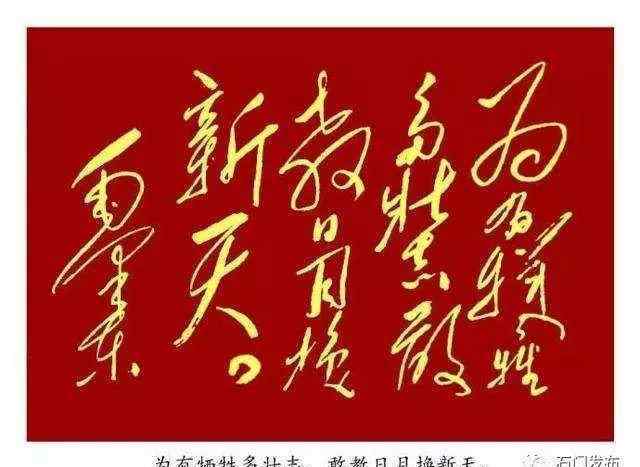 为有牺牲
多壮志敢
教日月换
新天。
毛泽东
为有牺牲多壮志，敢教日月换新天。
石门发布